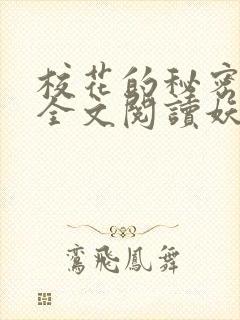 校花的秘密
全文閱讀妖
鸞飛鳳舞